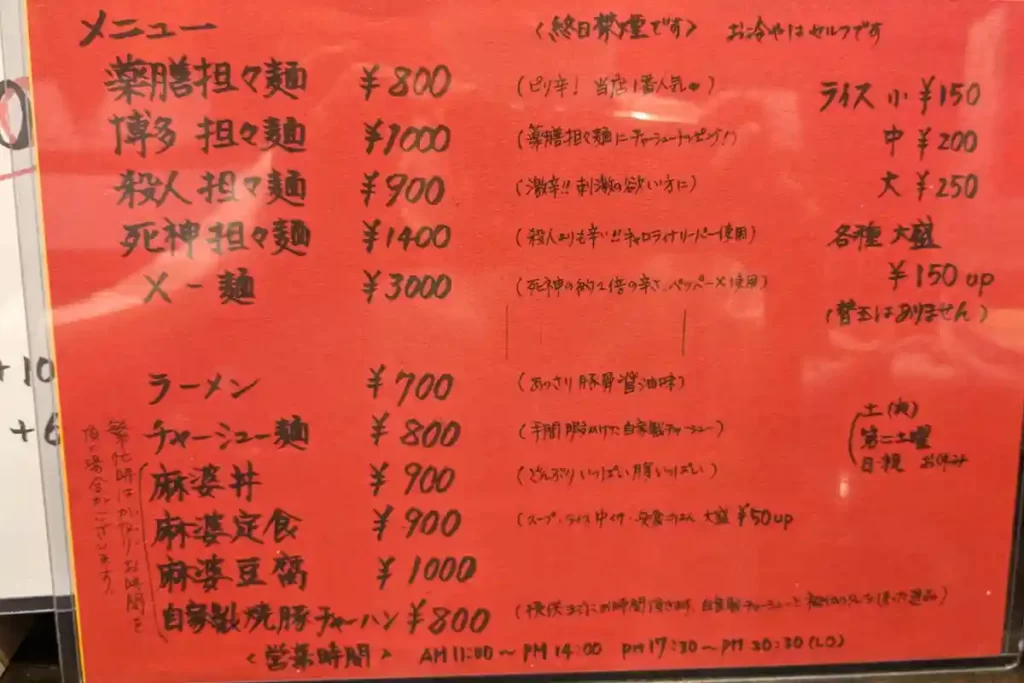 メニュー 〈終日禁煙です〉 お冷やはセルフです
薬膳担々麺 ¥800 (ピリ辛! 当店1番人気♥) ライス 小 ¥150
博多 担々麺 ¥1000 (薬膳担々麺にチャーシュートッピング!) 中 ¥200
殺人担々麺 ¥900 (激辛!! 刺激の欲い方に) 大 ¥250
死神担々麺 ¥1400 (殺人よりも辛い!! キャロライナリーパー使用) 各種 大盛
X-麺 ¥3000 (死神の約2倍の辛さ、ペッパーX使用) ¥150 up
(替玉はありません)
ラーメン ¥700 (あっさり豚骨醤油味)
チャーシュー麺 ¥800 (手間暇かけた自家製チャーシュー)
土(夜)
第二土曜
日・祝 お休み
麻婆丼 ¥900 (どんぶりいっぱい腹いっぱい)
麻婆定食 ¥900 (スープ、ライス中付・ 大盛 ¥50up
麻婆豆腐 ¥1000
自家製焼豚チャーハン ¥800 お時間頂きます、自家製チャーシューと
繁忙時はかなりお時間を
頂く場合がございます。
〈営業時間〉 AM11:00～PM14:00 PM17:30～PM20:30(LO)
+10
+6